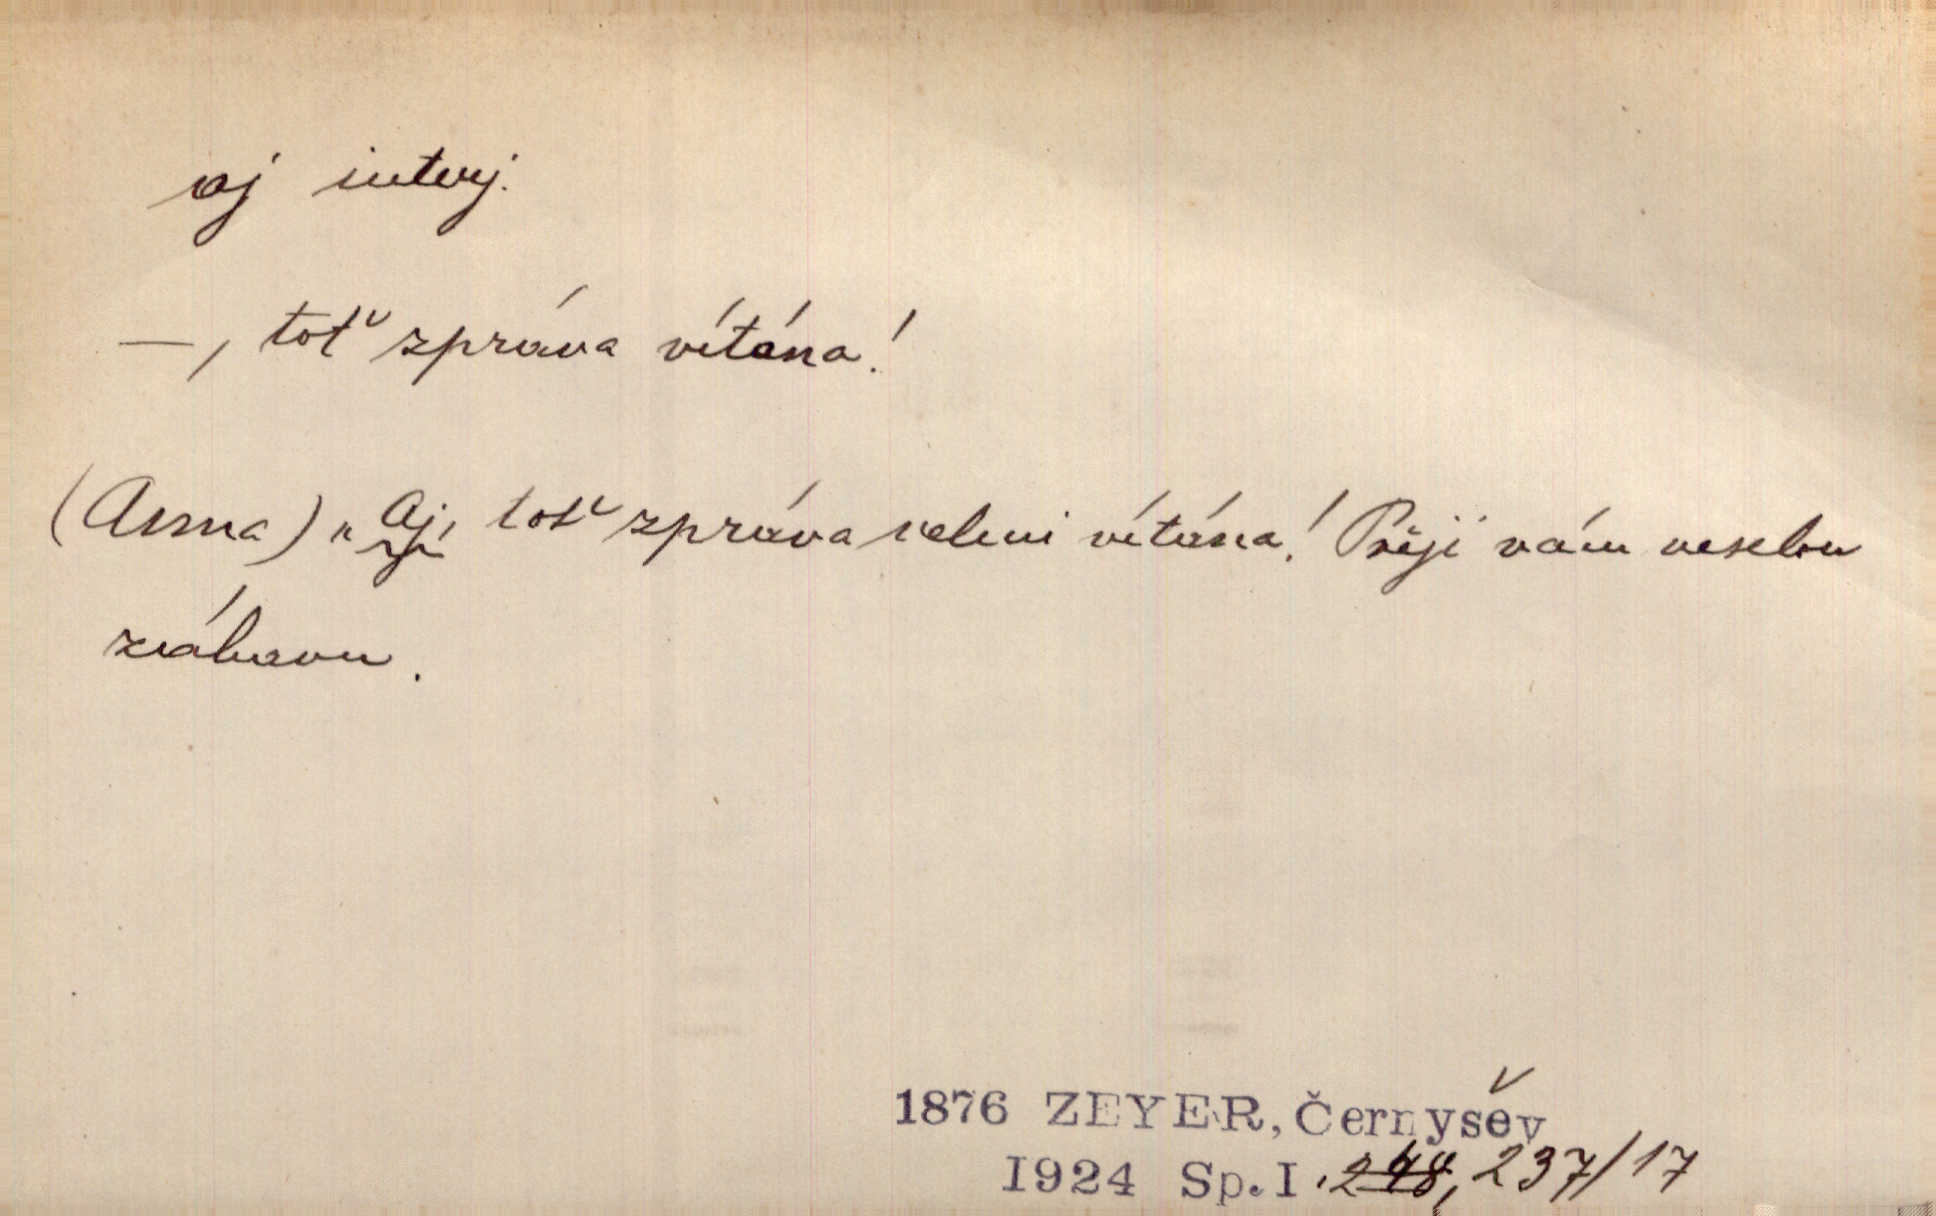 aj interj.
—, toť zpráva vítána!
(Anna) „Aj, toť zpráva velmi vítána! Přeji vám veselou
zábavu.
1876 ZEYER, Černyšev
1924 Sp. I. 248, 237/17